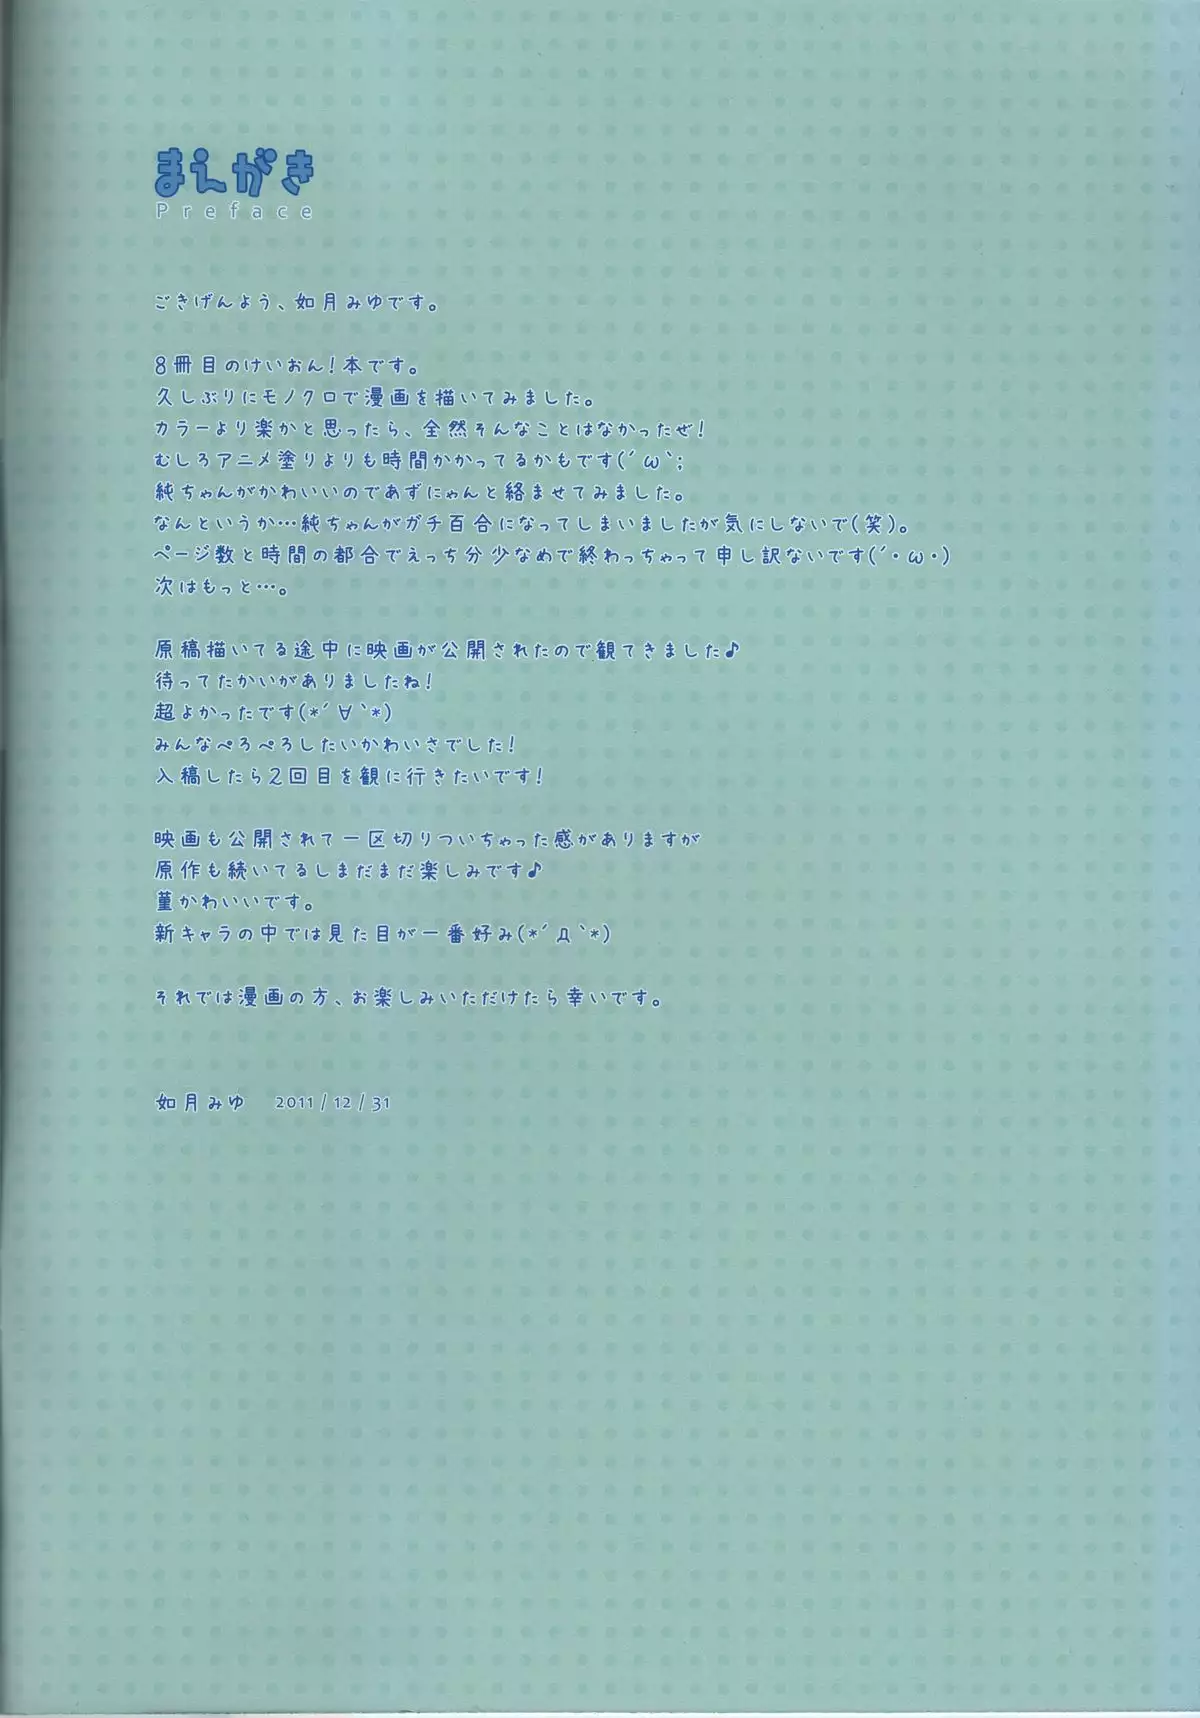 まえがき
Preface
ごきげんよう、如月みゆです。
8冊目のけいおん!本です。
久しぶりにモノクロで漫画を描いてみました。
カラーより楽かと思ったら、全然そんなことはなかったぜ!
むしろアニメ塗りよりも時間かかってるかもです(´ω`;
純ちゃんがかわいいのであずにゃんと絡ませてみました。
なんというか…純ちゃんがガチ百合になってしまいましたが気にしないで(笑)。
ページ数と時間の都合でえっち分少なめで終わっちゃって申し訳ないです(´・ω・)
次はもっと…。
原稿描いてる途中に映画が公開されたので観てきました♪
待ってたかいがありましたね!
超よかったです(*´∀`*)
みんなぺろぺろしたいかわいさでした!
入稿したら2回目を観に行きたいです!
映画も公開されて一区切りついちゃった感がありますが
原作も続いてるしまだまだ楽しみです♪
菫かわいいです。
新キャラの中では見た目が一番好み(*´Д`*)
それでは漫画の方、お楽しみいただけたら幸いです。
如月みゆ 2011/12/31